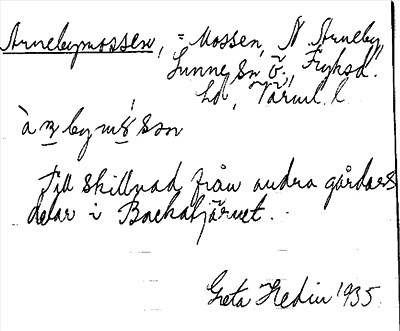 Arnebymossen, = Mossen, N Arneby,
Sunne sn Ö., Fryksd.
hd, Värml. l.
Till skillnad från andra gårdars
delar i Backafjärvet.
Greta Hedin 1935.